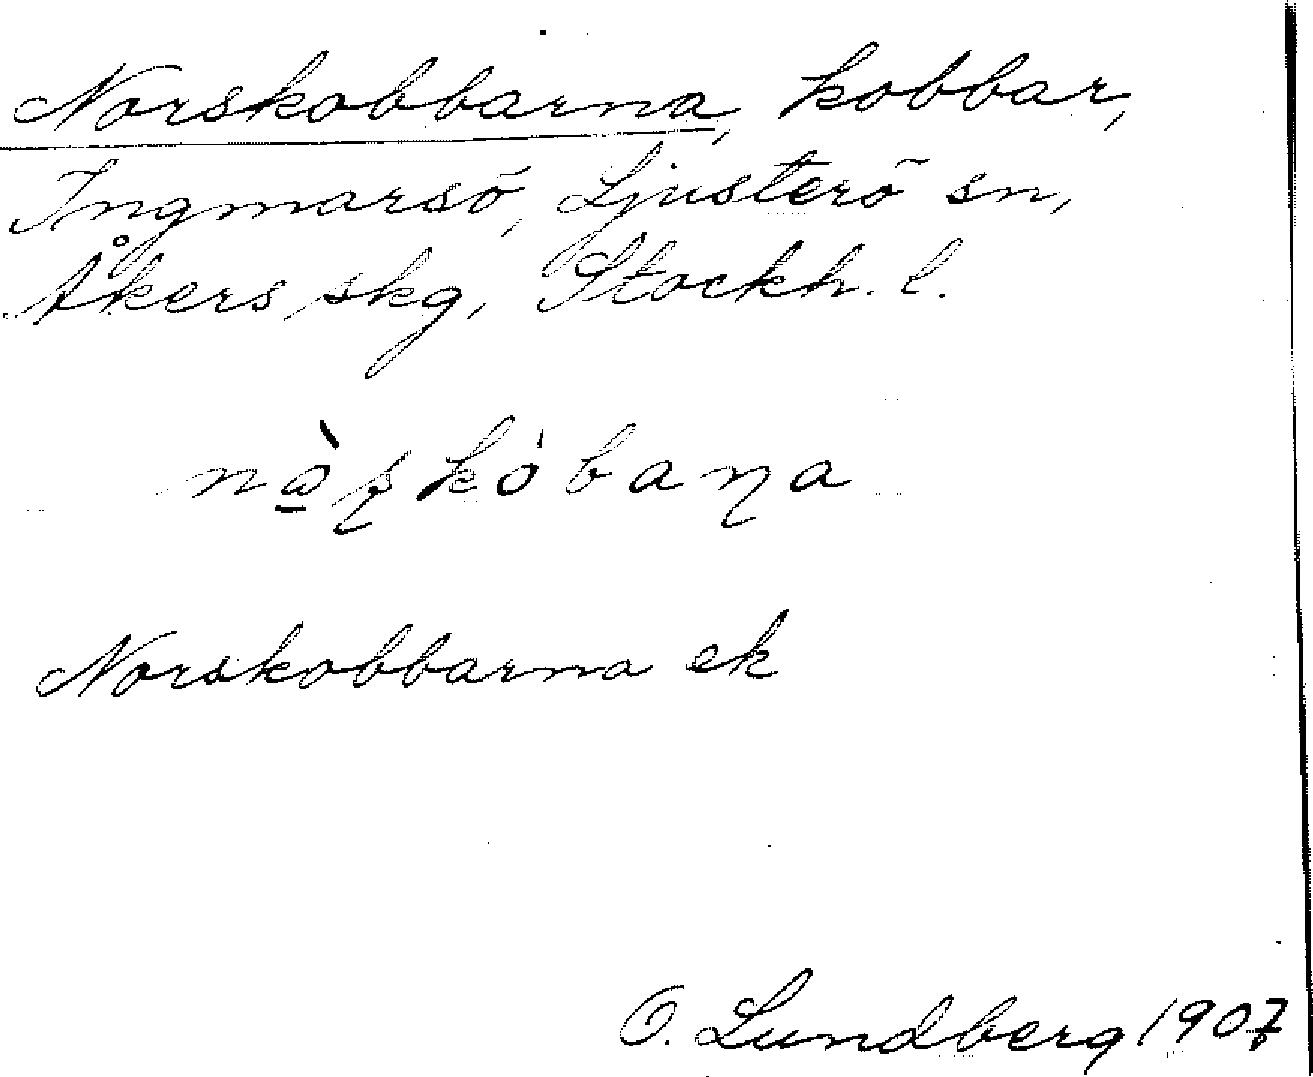 Norskobbarna, kobbar,
Ingmarsö, Ljusterö sn,
Åkers skg, Stockh. l.
Norskobbarna ek
O. Lundberg 1907